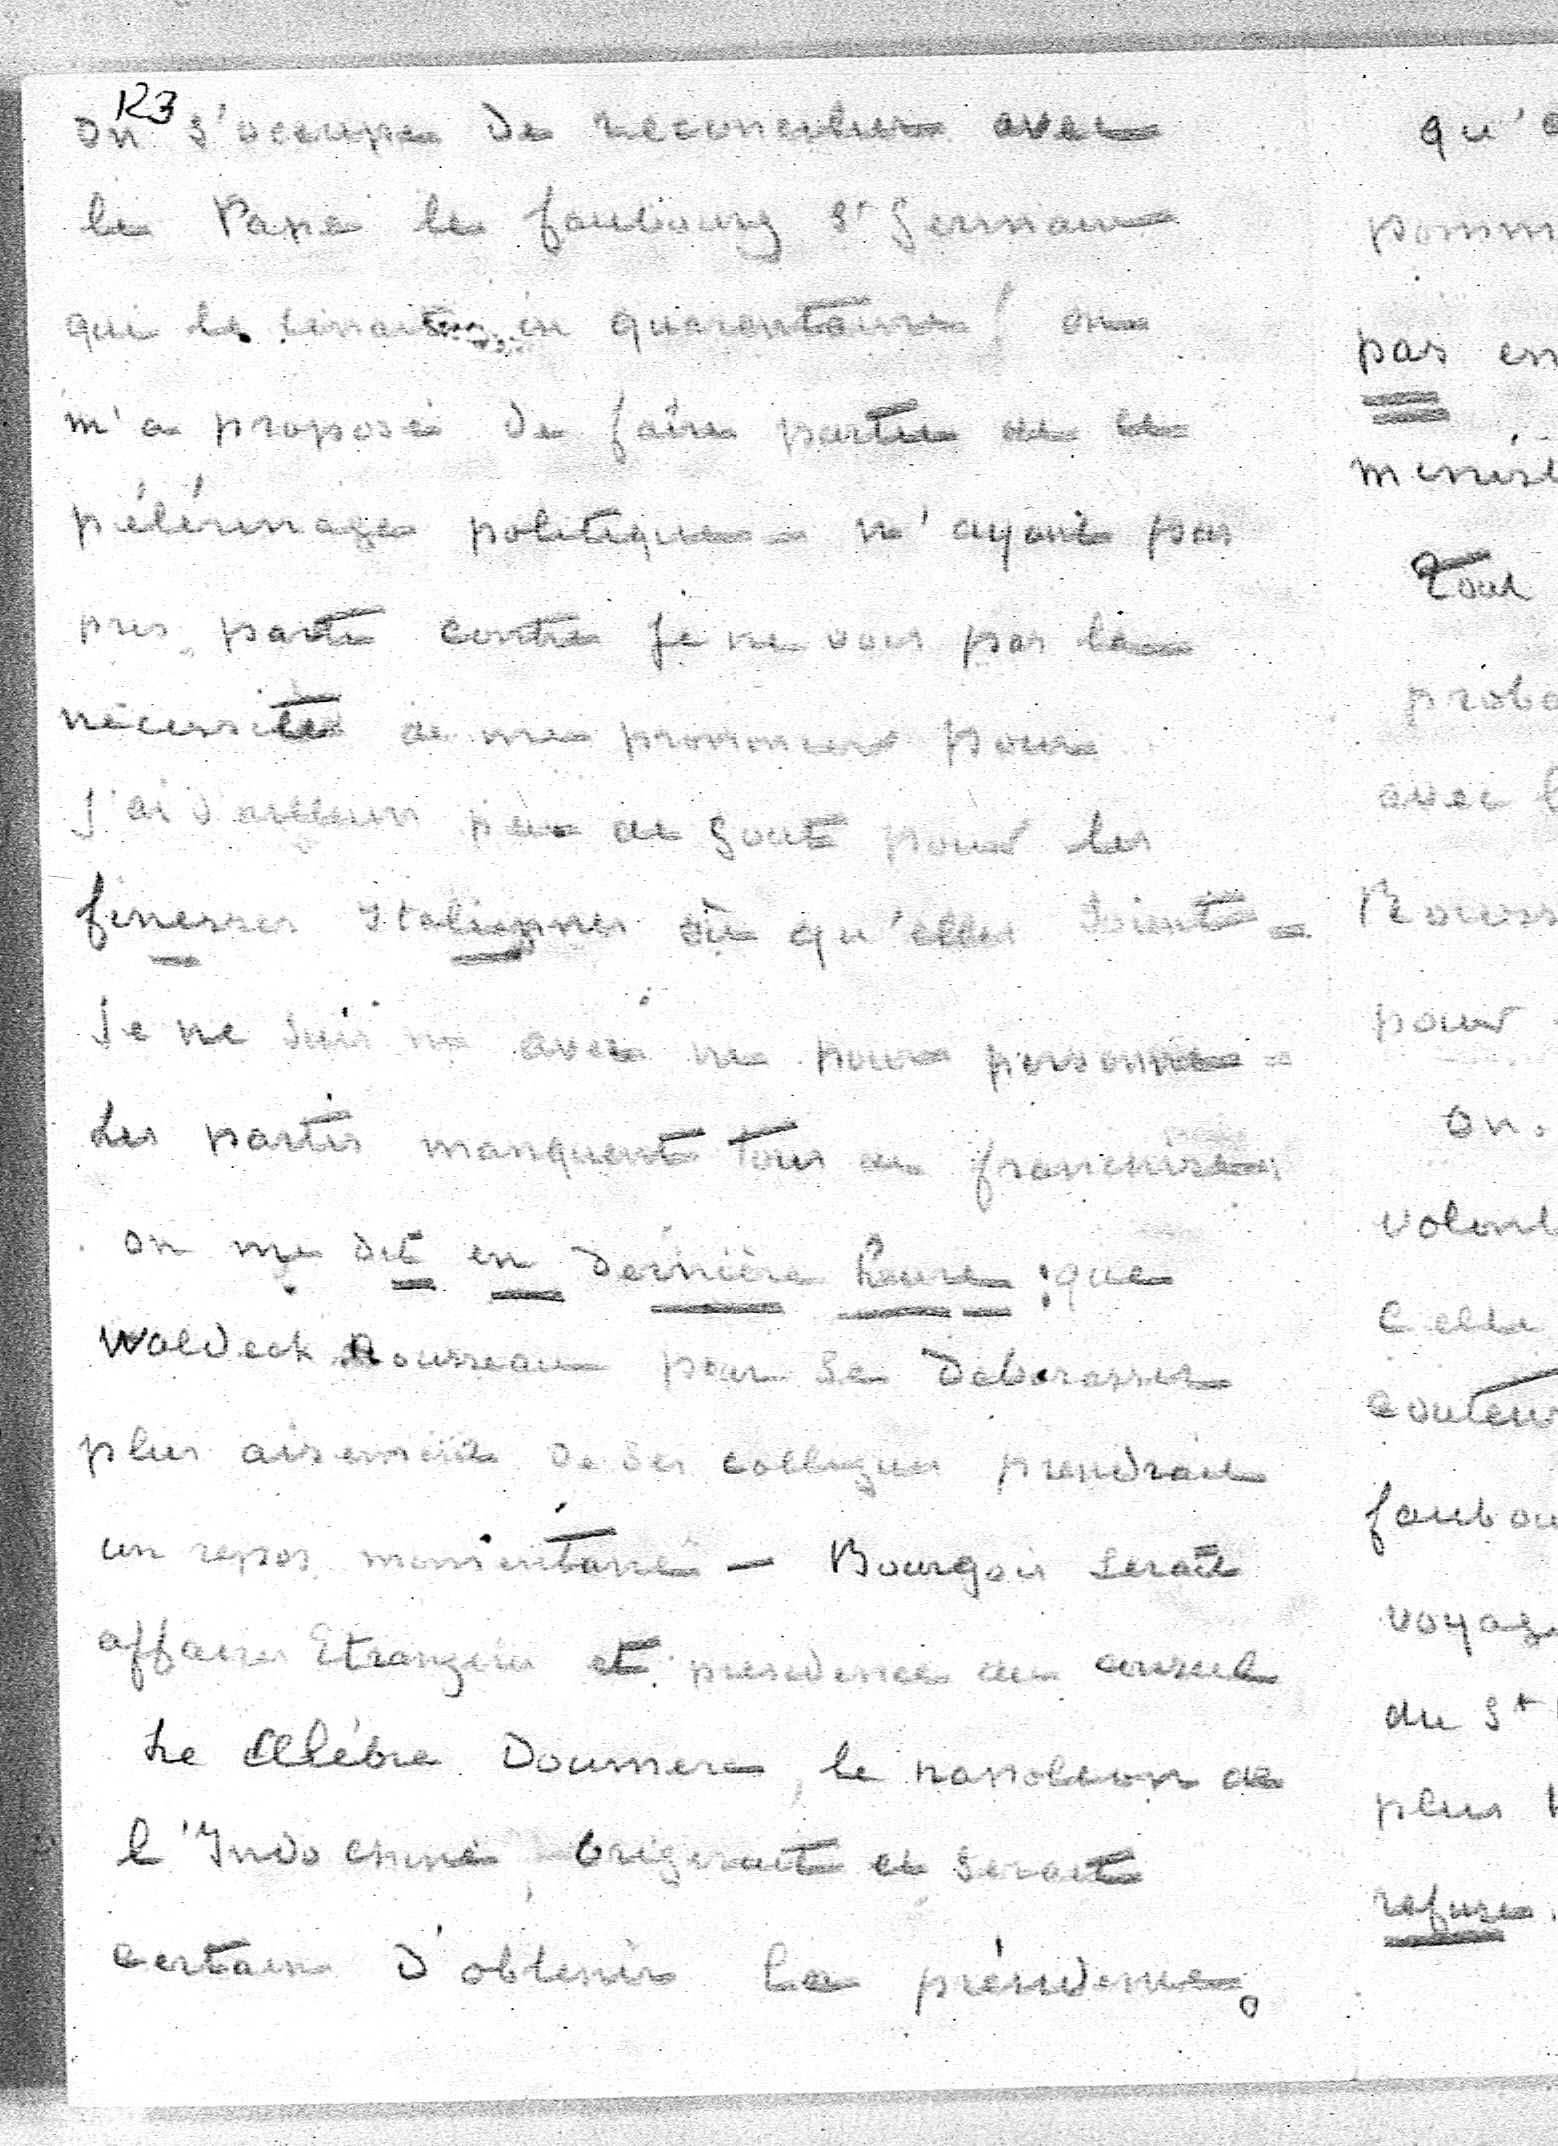 123
on s'occupe de reconcilier avec
le Pape le faubourg St Germain
qui le tenait en quarantaine! on
m'a proposé de faire partie de ce
pélérinage politique - n'ayant pas
pris parti contre je ne vois pas la
nécessité de me prononcer pour
j'ai d'ailleurs peu de gout pour les
finesses Italiennes où qu'elles soient -
Je ne suis ni avec ni pour personne -
Les partis manquent tous de franchise
on me dit en dernière heure : que
Waldeck Rousseau pour se debarasser
plus aisement de ses collegues prendrait
un repos momentané - Bourgois serait
affaires Etrangeres et presidence du conseil
Le Célébre Doumere, le napoleon de
l'Indo chine, briguerait et serait
certain d'obtenir la présidence.
qu'
pomm
pas en
minist
Tout
proba
avec l
Rouss
pour
on
volont
Celle
couteu
faubou
voyag
du St
plus
refuse.